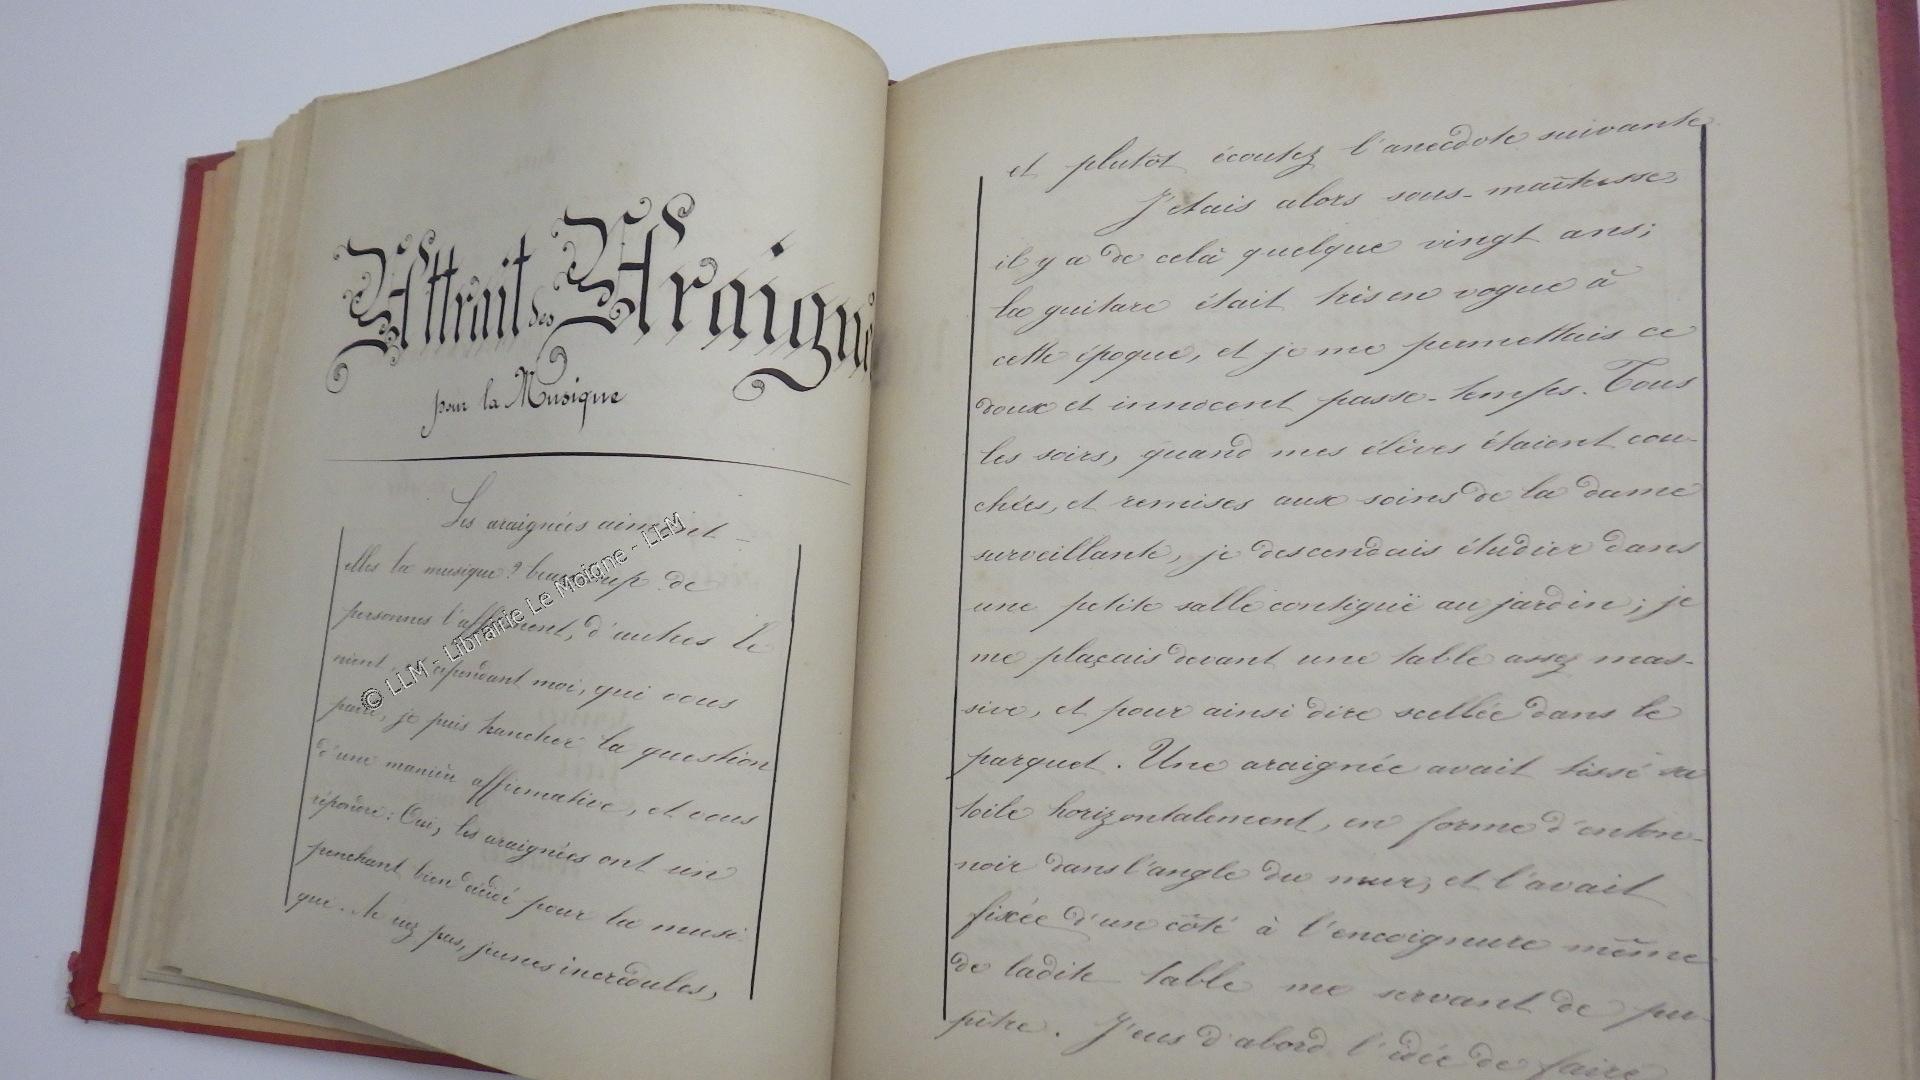 Attrait des Araigné
pour la Musique
Les araignées aiment-
elles la musique? beaucoup de
personnes l'affirment, d'autres le
nient. Cependant moi, qui vous
parle, je puis trancher la question
d'une manière affirmative, et vous
répondre: Oui, les araignées ont un
penchant bien décidé pour la musi-
que. Ne riez pas, jeunes incrédules,
et plutôt écoutez l'anecdote suivante
J'étais alors sous-maîtresse,
il y a de celà quelque vingt ans;
la guitare était très en vogue à
cette époque, et je me permettais ce
doux et innocent passe-temps. Tous
les soirs, quand mes élèves étaient cou-
chées, et remises aux soins de la dame
surveillante, je descendais étudier dans
une petite salle contiguë au jardin; je
me plaçais devant une table assez mas-
sive, et pour ainsi dire scellée dans le
parquet. Une araignée avait tissé sa
toile horizontalement, en forme d'enton-
noir dans l'angle du mur, et l'avait
fixée d'un côté à l'encoignure même
de ladite table me servant de pu-
pitre. J'eus d'abord l'idée de faire
© LLM - Librairie Le Moigne - LLM